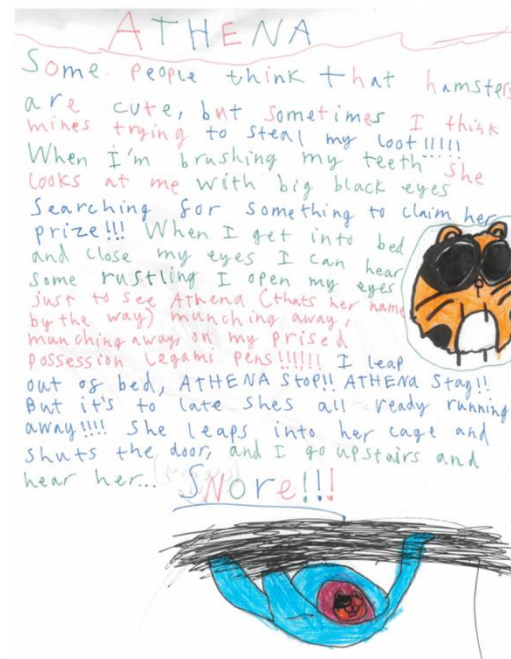 ATHENA
Some people think that hamsters
are cute, but sometimes I think
mines trying to steal my loot!!!!!
When I'm brushing my teeth she
looks at me with big black eyes
Searching for something to claim her
prize!!! When I get into bed
and close my eyes I can hear
some rustling I open my eyes
just to see Athena (thats her name
by the way) munching away,
munching away, on my prised
possession Legami pens!!!!!! I leap
out of bed, ATHENA STOP!! ATHENA Stay!!
But it's to late shes all ready running
away!!!! She leaps into her cage and
shuts the door, and I go upstairs and
hear her... SNORE!!!